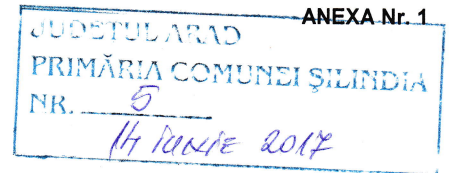 ANEXA Nr. 1
JUDEŢUL ARAD
PRIMĂRIA COMUNEI ŞILINDIA
NR. 5
14 iunie 2017